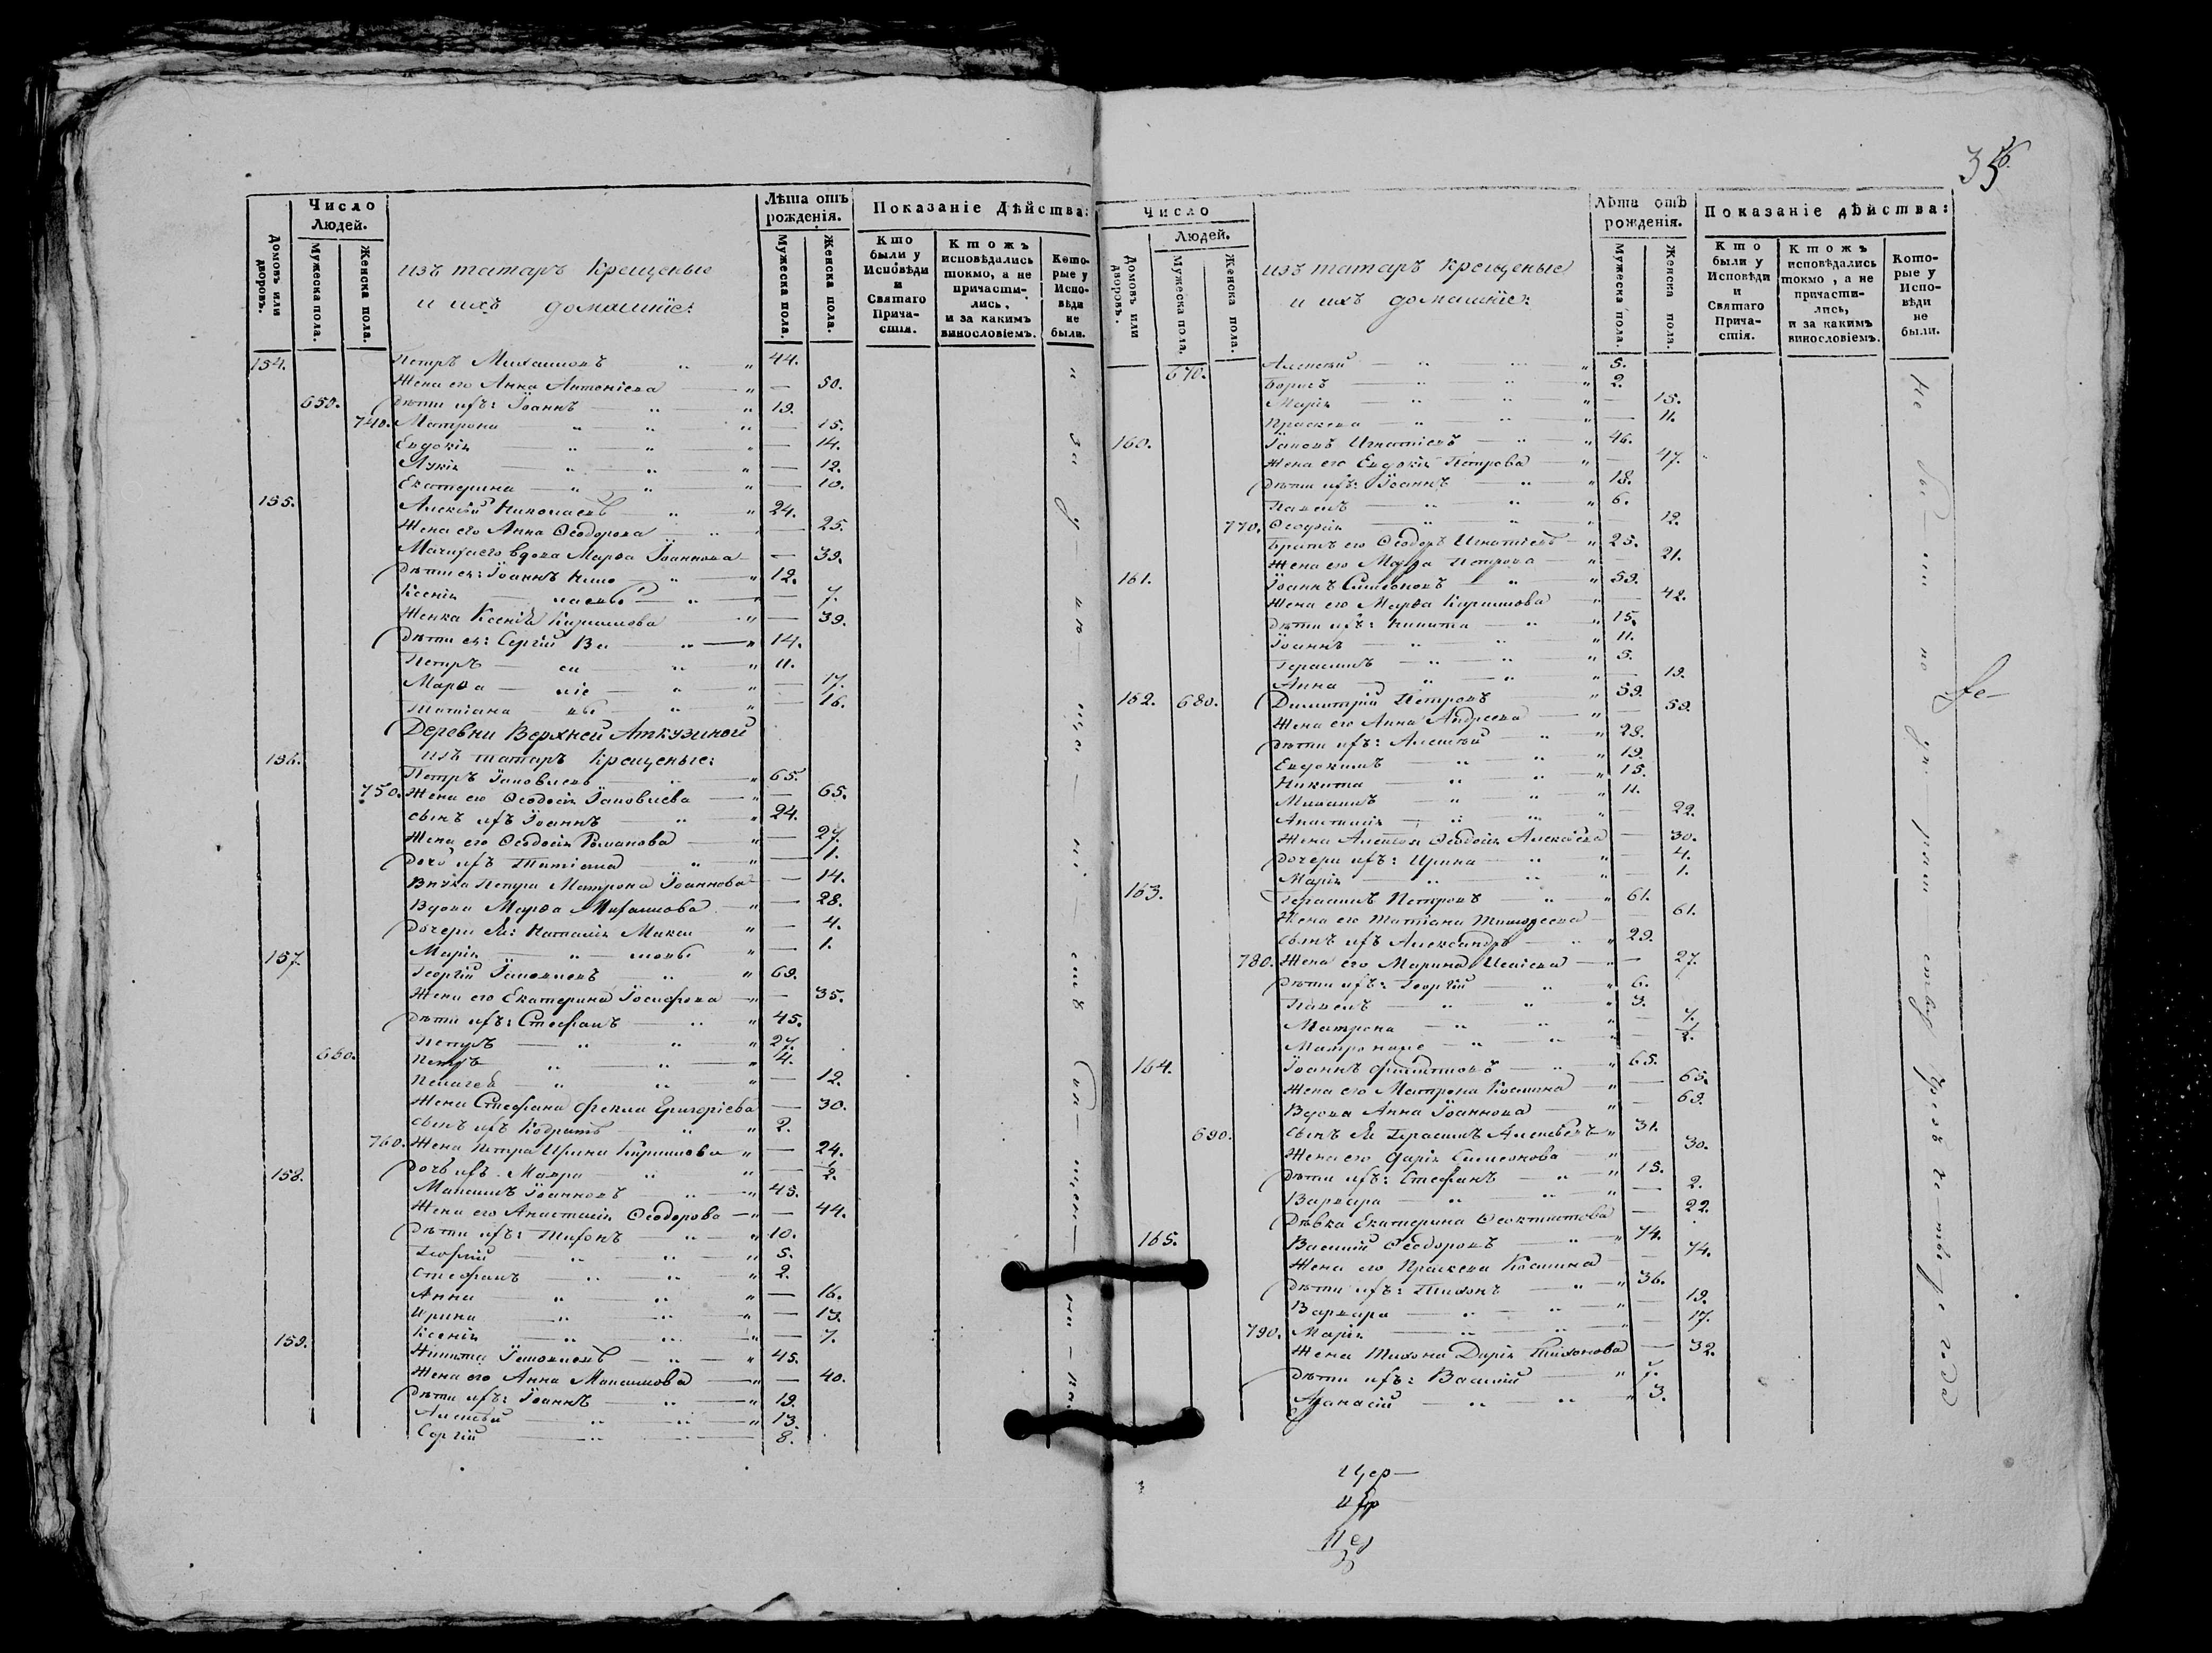 35
Число
Людей.
Домовъ или дворовъ.
Мужеска пола.
Женска пола.
изъ татаръ крещеные
и ихъ домашніе:
Лѣта отъ рожденія.
Мужеска пола.
Женска пола.
Показаніе Дѣйства:
Кто были у Исповѣди и Святаго Причастія.
Ктожъ исповѣдались токмо, а не причастились, и за какимъ винословіемъ.
Которые у Исповѣди не были.
154. Петръ Михаиловъ 44.
Жена его Анна Антоніева 50.
650. Дѣти ихъ: Іоаннъ 19.
740. Матрона 15.
Евдокія 14.
Лукія 12.
Екатерина 10.
155. Алексѣй Николаевъ 24.
Жена его Анна Ѳеодорова 25.
Мачиха его вдова Марѳа Іоаннова 39.
Дѣти ея: Іоаннъ Нико 12.
Ксенія лаевы 7.
Женка Ксенія Кирилова 39.
Дѣти ея: Сергій Ва 14.
Петръ си 11.
Марѳа ліе 17.
Татіана вы 16.
Деревни Верхней Аткузиной
изъ татаръ крещеные:
156. Петръ Іаковлевъ 65.
750. Жена его Ѳеодосія Іаковлева 65.
сынъ ихъ Іоаннъ 24.
Жена его Ѳеодосія Романова 27.
Дочь ихъ Татіана 1.
Внука Петра Матрона Іоаннова 14.
Вдова Марѳа Михаилова 28.
Дочери ея: Наталія Макси 4.
Марія мовы 1.
157. Георгій Іаковлевъ 69.
Жена его Екатерина Іосифова 35.
Дѣти ихъ: Стефанъ 45.
Петръ 27.
660. Петръ 4.
Пелагея 12.
Жена Стефана Фекла Григоріева 30.
сынъ ихъ Кодратъ 2.
760. Жена Петра Ирина Кирилова 24.
Дочь ихъ Мавра 1/2.
158. Максимъ Іоанновъ 45.
Жена его Анастасія Ѳеодорова 44.
Дѣти ихъ: Тихонъ 10.
5.
Стефанъ 2.
Анна 16.
Ирина 13.
Ксенія 7.
159. Никита Іаковлевъ 45.
Жена его Анна Максимова 40.
Дѣти ихъ: Іоаннъ 19.
Алексѣй 13.
Сергій 8.
Число
Людей.
Домовъ или дворовъ.
Мужеска пола.
Женска пола.
изъ татаръ крещеные
и ихъ домашніе:
Лѣта отъ рожденія.
Мужеска пола.
Женска пола.
Показаніе дѣйства:
Кто были у Исповѣди и Святаго Причастія.
Ктожъ исповѣдались токмо, а не причастились, и за какимъ винословіемъ.
Которые у Исповѣди не были.
Алексѣй 5.
670. Борисъ 2.
Марія 15.
Праскева 11.
160. Іаковъ Игнатіевъ 46.
Жена его Евдокія Петрова 47.
Дѣти ихъ: Іоаннъ 18.
Павелъ 6.
770. Ѳеофія 12.
Братъ его Ѳеодоръ Игнатіевъ 25.
Жена его Марѳа Петрова 21.
161. Іоаннъ Симеоновъ 59.
Жена его Марѳа Кирилова 42.
Дѣти ихъ: Никита 15.
Іоаннъ 11.
Герасимъ 5.
Анна 19.
162. 680. Димитрій Петровъ 59.
Жена его Анна Андреева 59.
Дѣти ихъ: Алексѣй 29.
Евдокимъ 19.
Никита 15.
Михаилъ 11.
Анастасія 22.
Жена Алексѣя Ѳеодосія Алексіева 30.
Дочери ихъ: Ирина 4.
Марія 1.
163. Герасимъ Петровъ 61.
Жена его Татіана Тимоѳеева 61.
сынъ ихъ Александръ 29.
780. Жена его Марина Исаіева 27.
Дѣти ихъ: Георгій 6.
Павелъ 3.
Матрона 7.
1/2.
164. Іоаннъ Филиповъ 65.
Жена его Матрона Косьмина 65.
Вдова Анна Іоаннова 69.
690. сынъ ея Герасимъ Алексѣевъ 31.
Жена его Дарія Симеонова 30.
Дѣти ихъ: Стефанъ 15.
Варвара 2.
Дѣвка Екатерина Ѳеоктистова 22.
165. Василій Ѳеодоровъ 74.
Жена его Праскева Косьмина 74.
Дѣти ихъ: Тихонъ 36.
Варвара 19.
790. Марія 17.
Жена Тихона Дарія Тихонова 32.
Дѣти ихъ: Василій 7.
Аѳанасій 3.